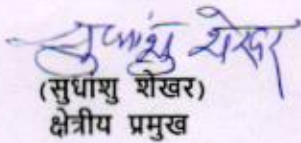 सुधांशु शेखर
(सुधांशु शेखर)
क्षेत्रीय प्रमुख